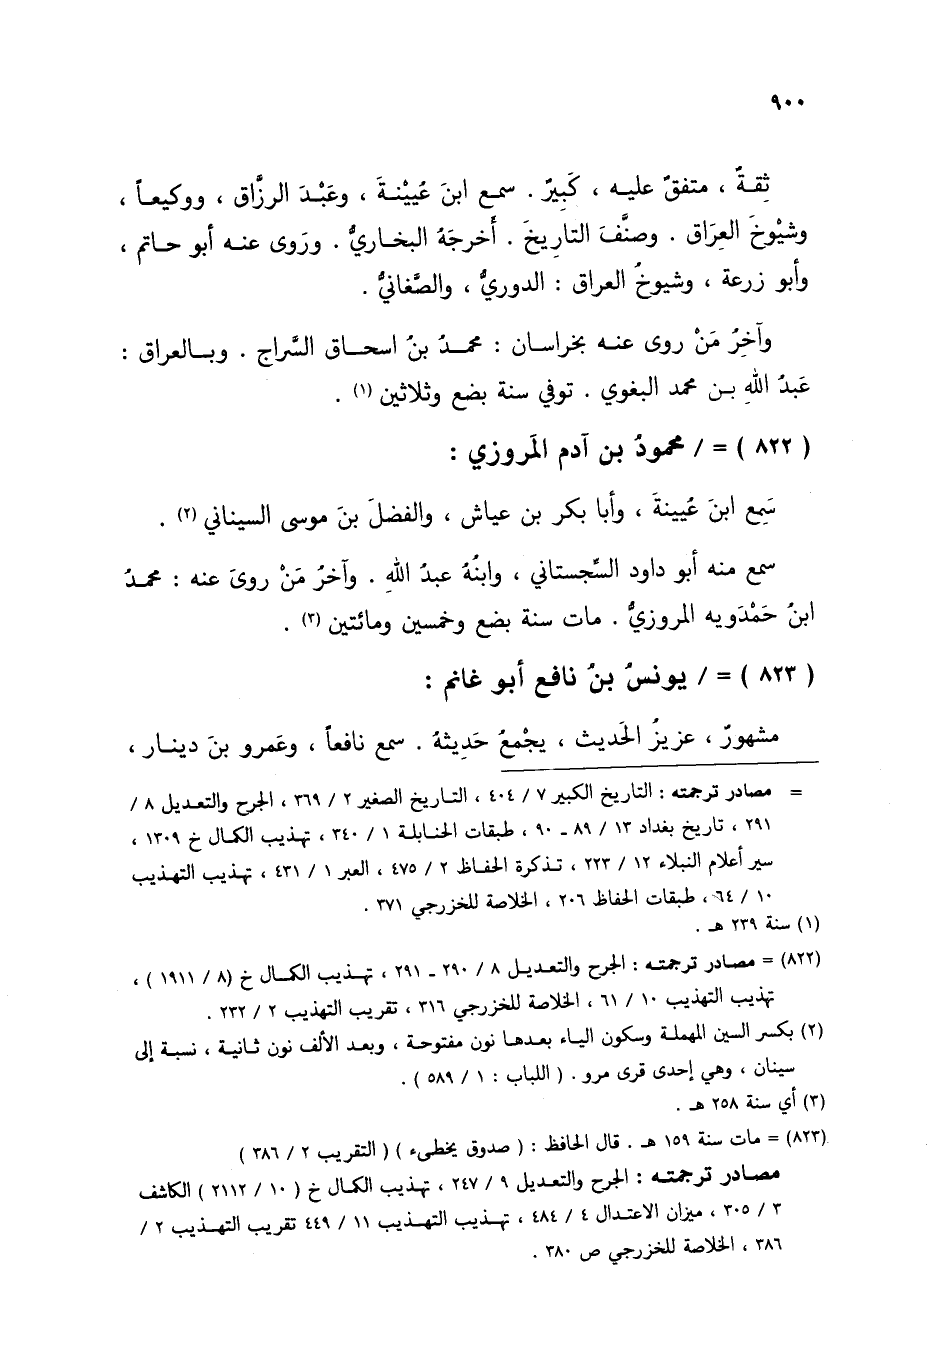 ٩٠٠
ثِقةٌ ، متفقٌ عليه ، كَبِيرٌ . سمع ابنَ عُيَيْنةَ ، وعَبْدَ الرزَّاق ، ووكيعاً ،
وشيُوخَ العِرَاق . وصنَّفَ التاريِخَ . أَخرجَهُ البخاريُّ . ورَوى عنه أبو حاتم ،
وأبو زرعة ، وشيوخُ العراق : الدوريُّ ، والصَّغانيُّ .
وآخِرُ مَنْ روى عنه بخراسان : محمدُ بنُ اسحاق السَّراج . وبالعراق :
عَبدُ اللهِ بن محمد البغوي . توفي سنة بضع وثلاثين (١) .
( ٨٢٢ ) = / محمودُ بن آدم المَروزي :
سَمِع ابنَ عُيينةَ ، وأبا بكر بن عياش ، والفضلَ بنَ موسى السيناني (٢) .
سمع منه أبو داود السِّجستاني ، وابنُهُ عبدُ اللهِ . وآخرُ مَنْ روىَ عنه : محمدُ
ابنُ حَمْدَويه المروزيُّ . مات سنة بضع وخمسين ومائتين (٣) .
( ٨٢٣ ) = / يونسُ بنُ نافع أبو غانم :
مشهورٌ ، عزيزُ الحَديث ، يجْمعُ حَدِيثهُ . سمع نافعاً ، وعَمرو بنَ دينار ،
= مصادر ترجمته : التاريخ الكبير ٧ / ٤٠٤ ، التاريخ الصغير ٢ / ٣٦٩ ، الجرح والتعديل ٨ /
٢٩١ ، تاريخ بغداد ١٣ / ٨٩ ـ ٩٠ ، طبقات الحنابلة ١ / ٣٤٠ ، تهذيب الكمال خ ١٣٠٩ ،
سير أعلام النبلاء ١٢ / ٢٢٣ ، تذكرة الحفاظ ٢ / ٤٧٥ ، العبر ١ / ٤٣١ ، تهذيب التهذيب
١٠ / ٦٤ ، طبقات الحفاظ ٢٠٦ ، الخلاصة للخزرجي ٣٧١ .
(١) سنة ٢٣٩ هـ .
(٨٢٢) = مصادر ترجمته : الجرح والتعديل ٨ / ٢٩٠ ـ ٢٩١ ، تهذيب الكمال خ (٨ / ١٩١١ ) ،
تهذيب التهذيب ١٠ / ٦١ ، الخلاصة للخزرجي ٣١٦ ، تقريب التهذيب ٢ / ٢٣٢ .
(٢) بكسر السين المهملة وسكون الياء بعدها نون مفتوحة ، وبعد الألف نون ثانية ، نسبة إلى
سينان ، وهي إحدى قرى مرو . ( اللباب : ١ / ٥٨٩ ) .
(٣) أي سنة ٢٥٨ هـ .
(٨٢٣) = مات سنة ١٥٩ هـ . قال الحافظ : ( صدوق يخطىء ) ( التقريب ٢ / ٣٨٦ )
مصادر ترجمته : الجرح والتعديل ٩ / ٢٤٧ ، تهذيب الكمال خ ( ١٠ / ٢١١٢ ) الكاشف
٣ / ٣٠٥ ، ميزان الاعتدال ٤ / ٤٨٤ ، تهذيب التهذيب ١١ / ٤٤٩ تقريب التهذيب ٢ /
٣٨٦ ، الخلاصة للخزرجي ص ٣٨٠ .